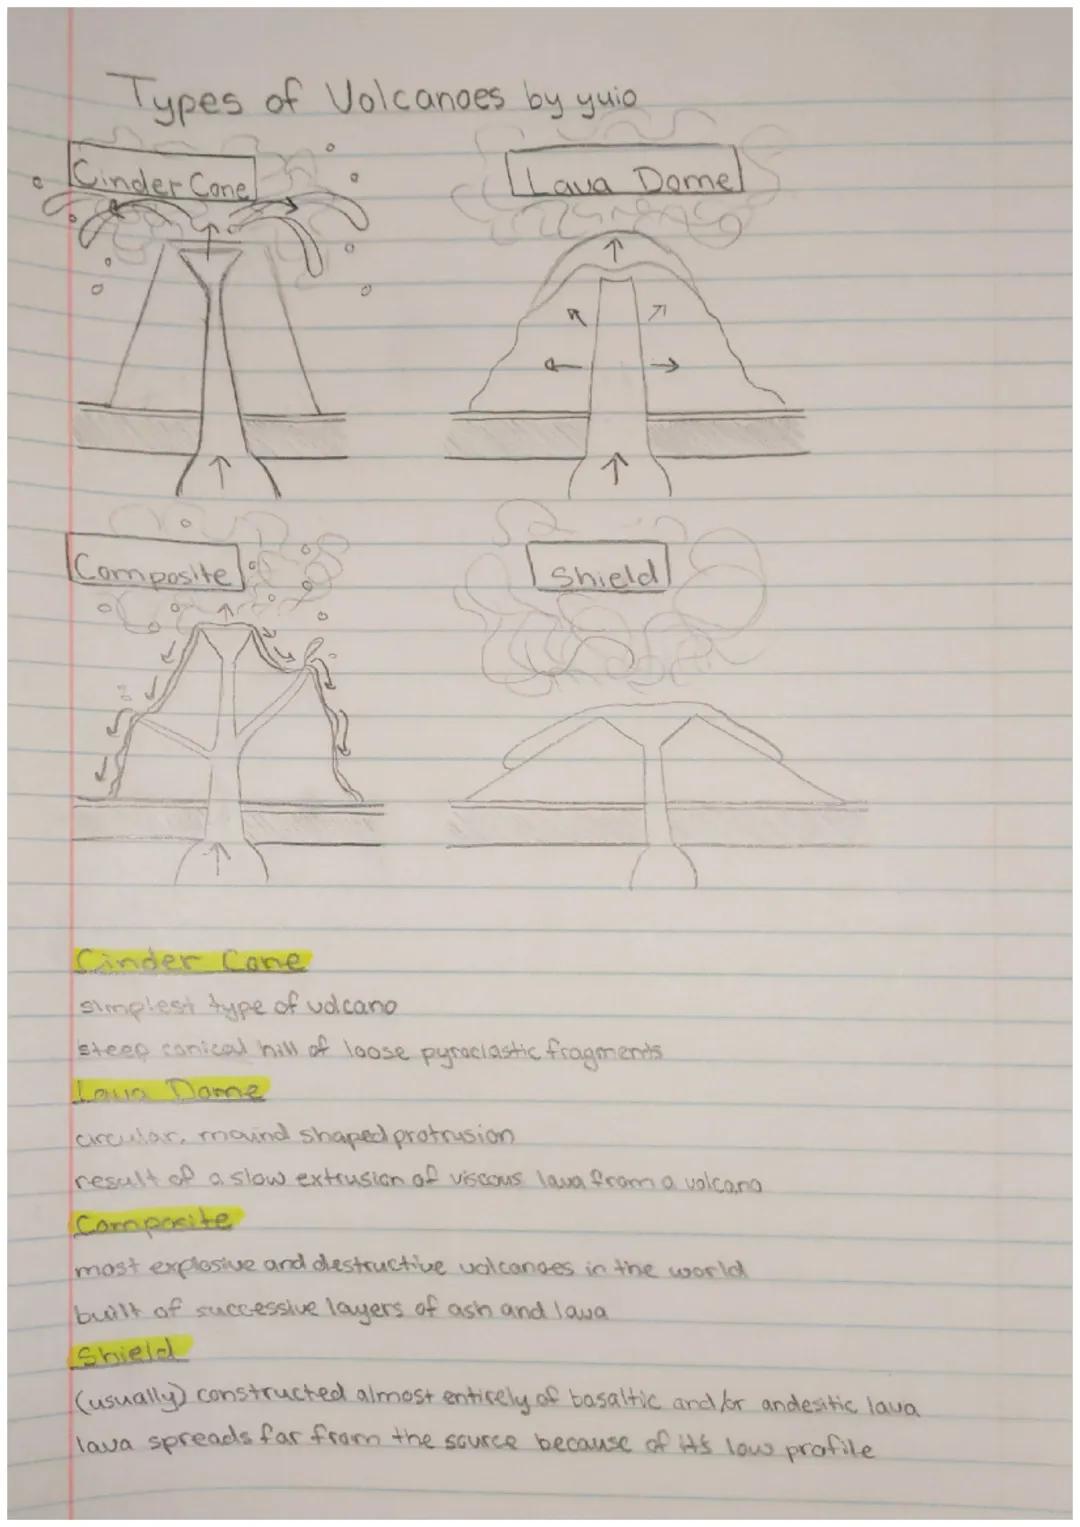 Types of Volcanoes by yuio
Cinder Cone
Lava Dome
Composite
Shield
Cinder Cone
simplest type of volcano
steep conical hill of loose pyroclastic fragments
Lava Dome
circular, mound shaped protrusion
result of a slow extrusion of viscous lava from a volcano
Composite
most explosive and destructive volcanoes in the world
built of successive layers of ash and lava
Shield
(usually) constructed almost entirely of basaltic and/or andesitic lava
lava spreads far from the source because of its low profile